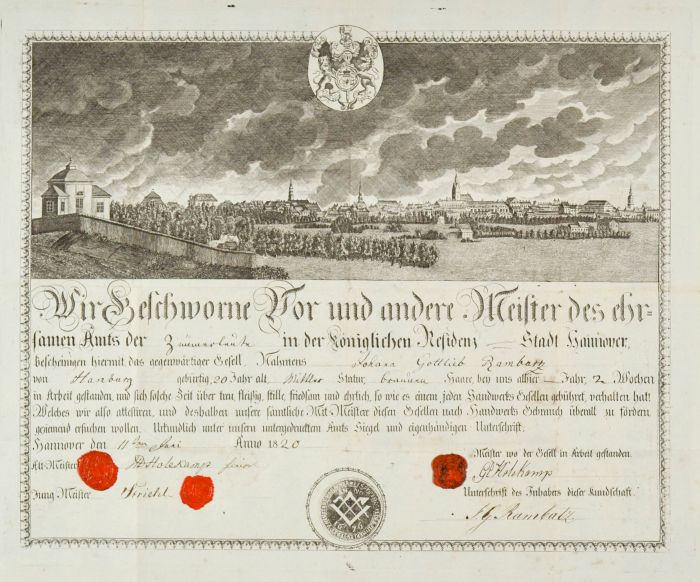 Wir Geschworne Vor und andere Meister des ehr=
samen Amts der Zimmerleute in der Königlichen Residenz Stadt Hannover,
bescheinigen hiermit das gegenwärtiger Gesell, Nahmens Johann Gottlieb Rambatz
von Harburg gebürtig, 20 Jahr alt, Mittler Statur, braunen Haare, bey uns allhier — Jahr, 2 Wochen
in Arbeit gestanden, und sich solche Zeit über treu, fleißig, stille, friedsam und ehrlich, so wie es einem jeden Handwerks Gesellen gebühret, verhalten hat;
Welches wir also attestiren, und deshalben unsere sämtliche Mit Meister diesen Gesellen nach Handwerks Gebrauch überall zu fördern,
geziemend ersuchen wollen. Urkundlich unter unsern untergedruckten Amts Siegel und eigenhändigen Unterschrift.
Hannover den 11ten Anno 1820
Meister wo der Gesell in Arbeit gestanden.
Alt Meister Holekamp
Holekamp
Jung Meister
Unterschrift des Inhabers dieser Kundschaft.
J G Rambatz